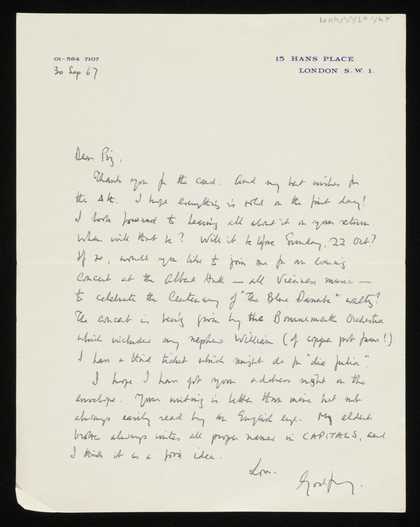 01-584 7107
15 HANS PLACE
LONDON S.W.1.
30 Sep 67
Dear
Thank you for the card. And my best wishes for
the I hope everything is sold on the first day!
I look forward to hearing all about it on your return.
When will that be? Will it be before Sunday, 22 Oct?
If so, would you like to join me for an evening
concert at the Albert Hall – all Viennese music –
to celebrate the Centenary of "The Blue Danube" waltz?
The concert is being given by the Bournemouth Orchestra
which includes my nephew William (of fame!)
I have a third ticket which might do for "die
I hope I have got your address right on the
envelope. Your writing is better than mine but not
always easily read by an English eye. My eldest
brother always writes all proper names in CAPITALS, and
I think it is a good idea.
Love.
Godfrey.